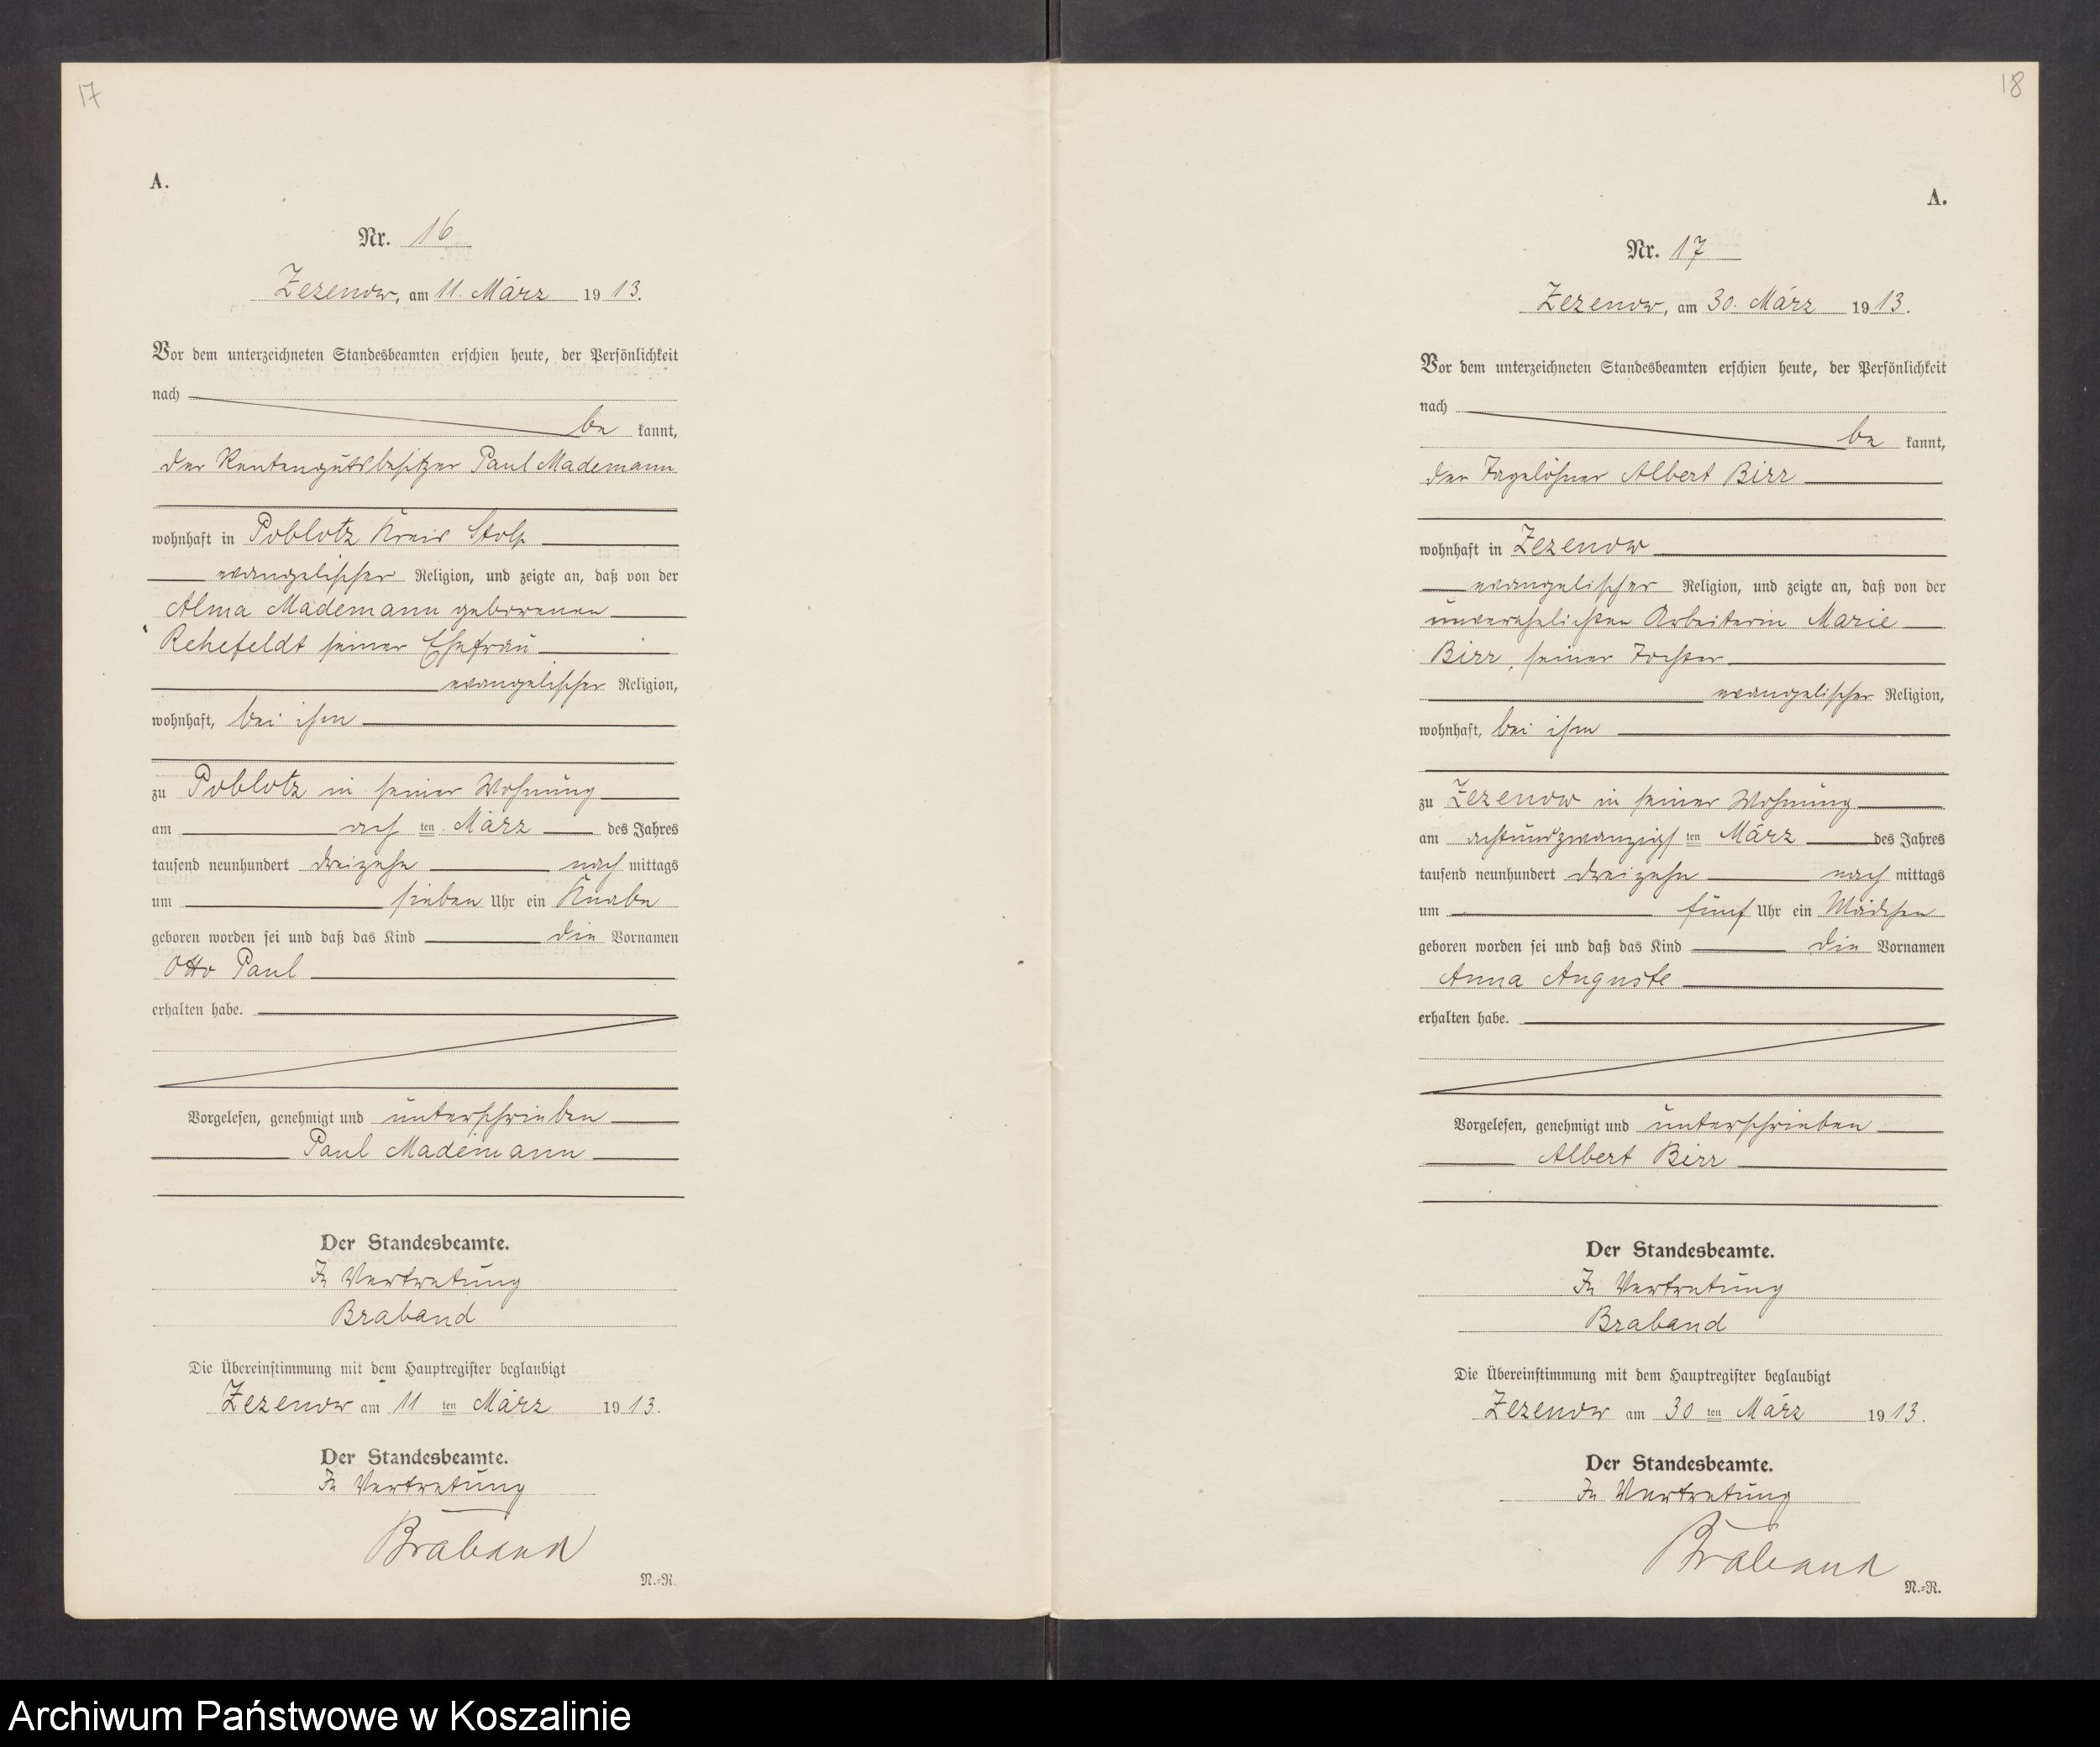 17
A.
Nr. 16
Zezenow, am 11. März 1913.
Vor dem unterzeichneten Standesbeamten erschien heute, der Persönlichkeit
nach
be kannt,
der Rentengutsbesitzer Paul Mademann
wohnhaft in Poblotz Kreis Stolp
evangelischer Religion, und zeigte an, daß von der
Alma Mademann geborenen
Rehefeldt seiner Ehefrau
evangelischer Religion,
wohnhaft, bei ihm
zu Poblotz in seiner Wohnung
am ach ten März des Jahres
tausend neunhundert dreizehn nach mittags
um sieben Uhr ein Knabe
geboren worden sei und daß das Kind die Vornamen
Otto Paul
erhalten habe.
Vorgelesen, genehmigt und unterschrieben
Paul Mademann
Der Standesbeamte.
In Vertretung
Braband
Die Übereinstimmung mit dem Hauptregister beglaubigt
Zezenow am 11 ten März 1913.
Der Standesbeamte.
In Vertretung
Braband
N.-R.
18
A.
Nr. 17
Zezenow, am 30. März 1913.
Vor dem unterzeichneten Standesbeamten erschien heute, der Persönlichkeit
nach
be kannt,
der Tagelöhner Albert Birr
wohnhaft in Zezenow
evangelischer Religion, und zeigte an, daß von der
unverehelichten Arbeiterin Marie
Birr, seiner Tochter
evangelischer Religion,
wohnhaft, bei ihm
zu Zezenow in seiner Wohnung
am achtundzwanzigs ten März des Jahres
tausend neunhundert dreizehn nach mittags
um fünf Uhr ein Mädchen
geboren worden sei und daß das Kind die Vornamen
Anna Auguste
erhalten habe.
Vorgelesen, genehmigt und unterschrieben
Albert Birr
Der Standesbeamte.
In Vertretung
Braband
Die Übereinstimmung mit dem Hauptregister beglaubigt
Zezenow am 30 ten März 1913.
Der Standesbeamte.
In Vertretung
Braband
N.-R.
Archiwum Państwowe w Koszalinie